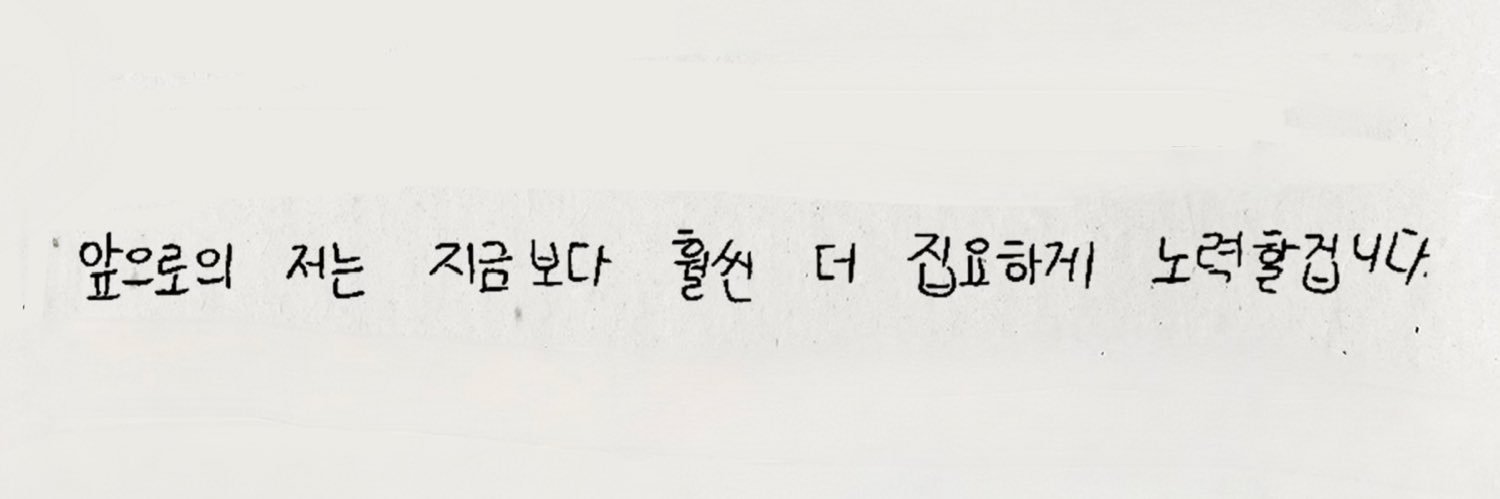 앞으로의 저는 지금보다 훨씬 더 집요하게 노력할겁니다.